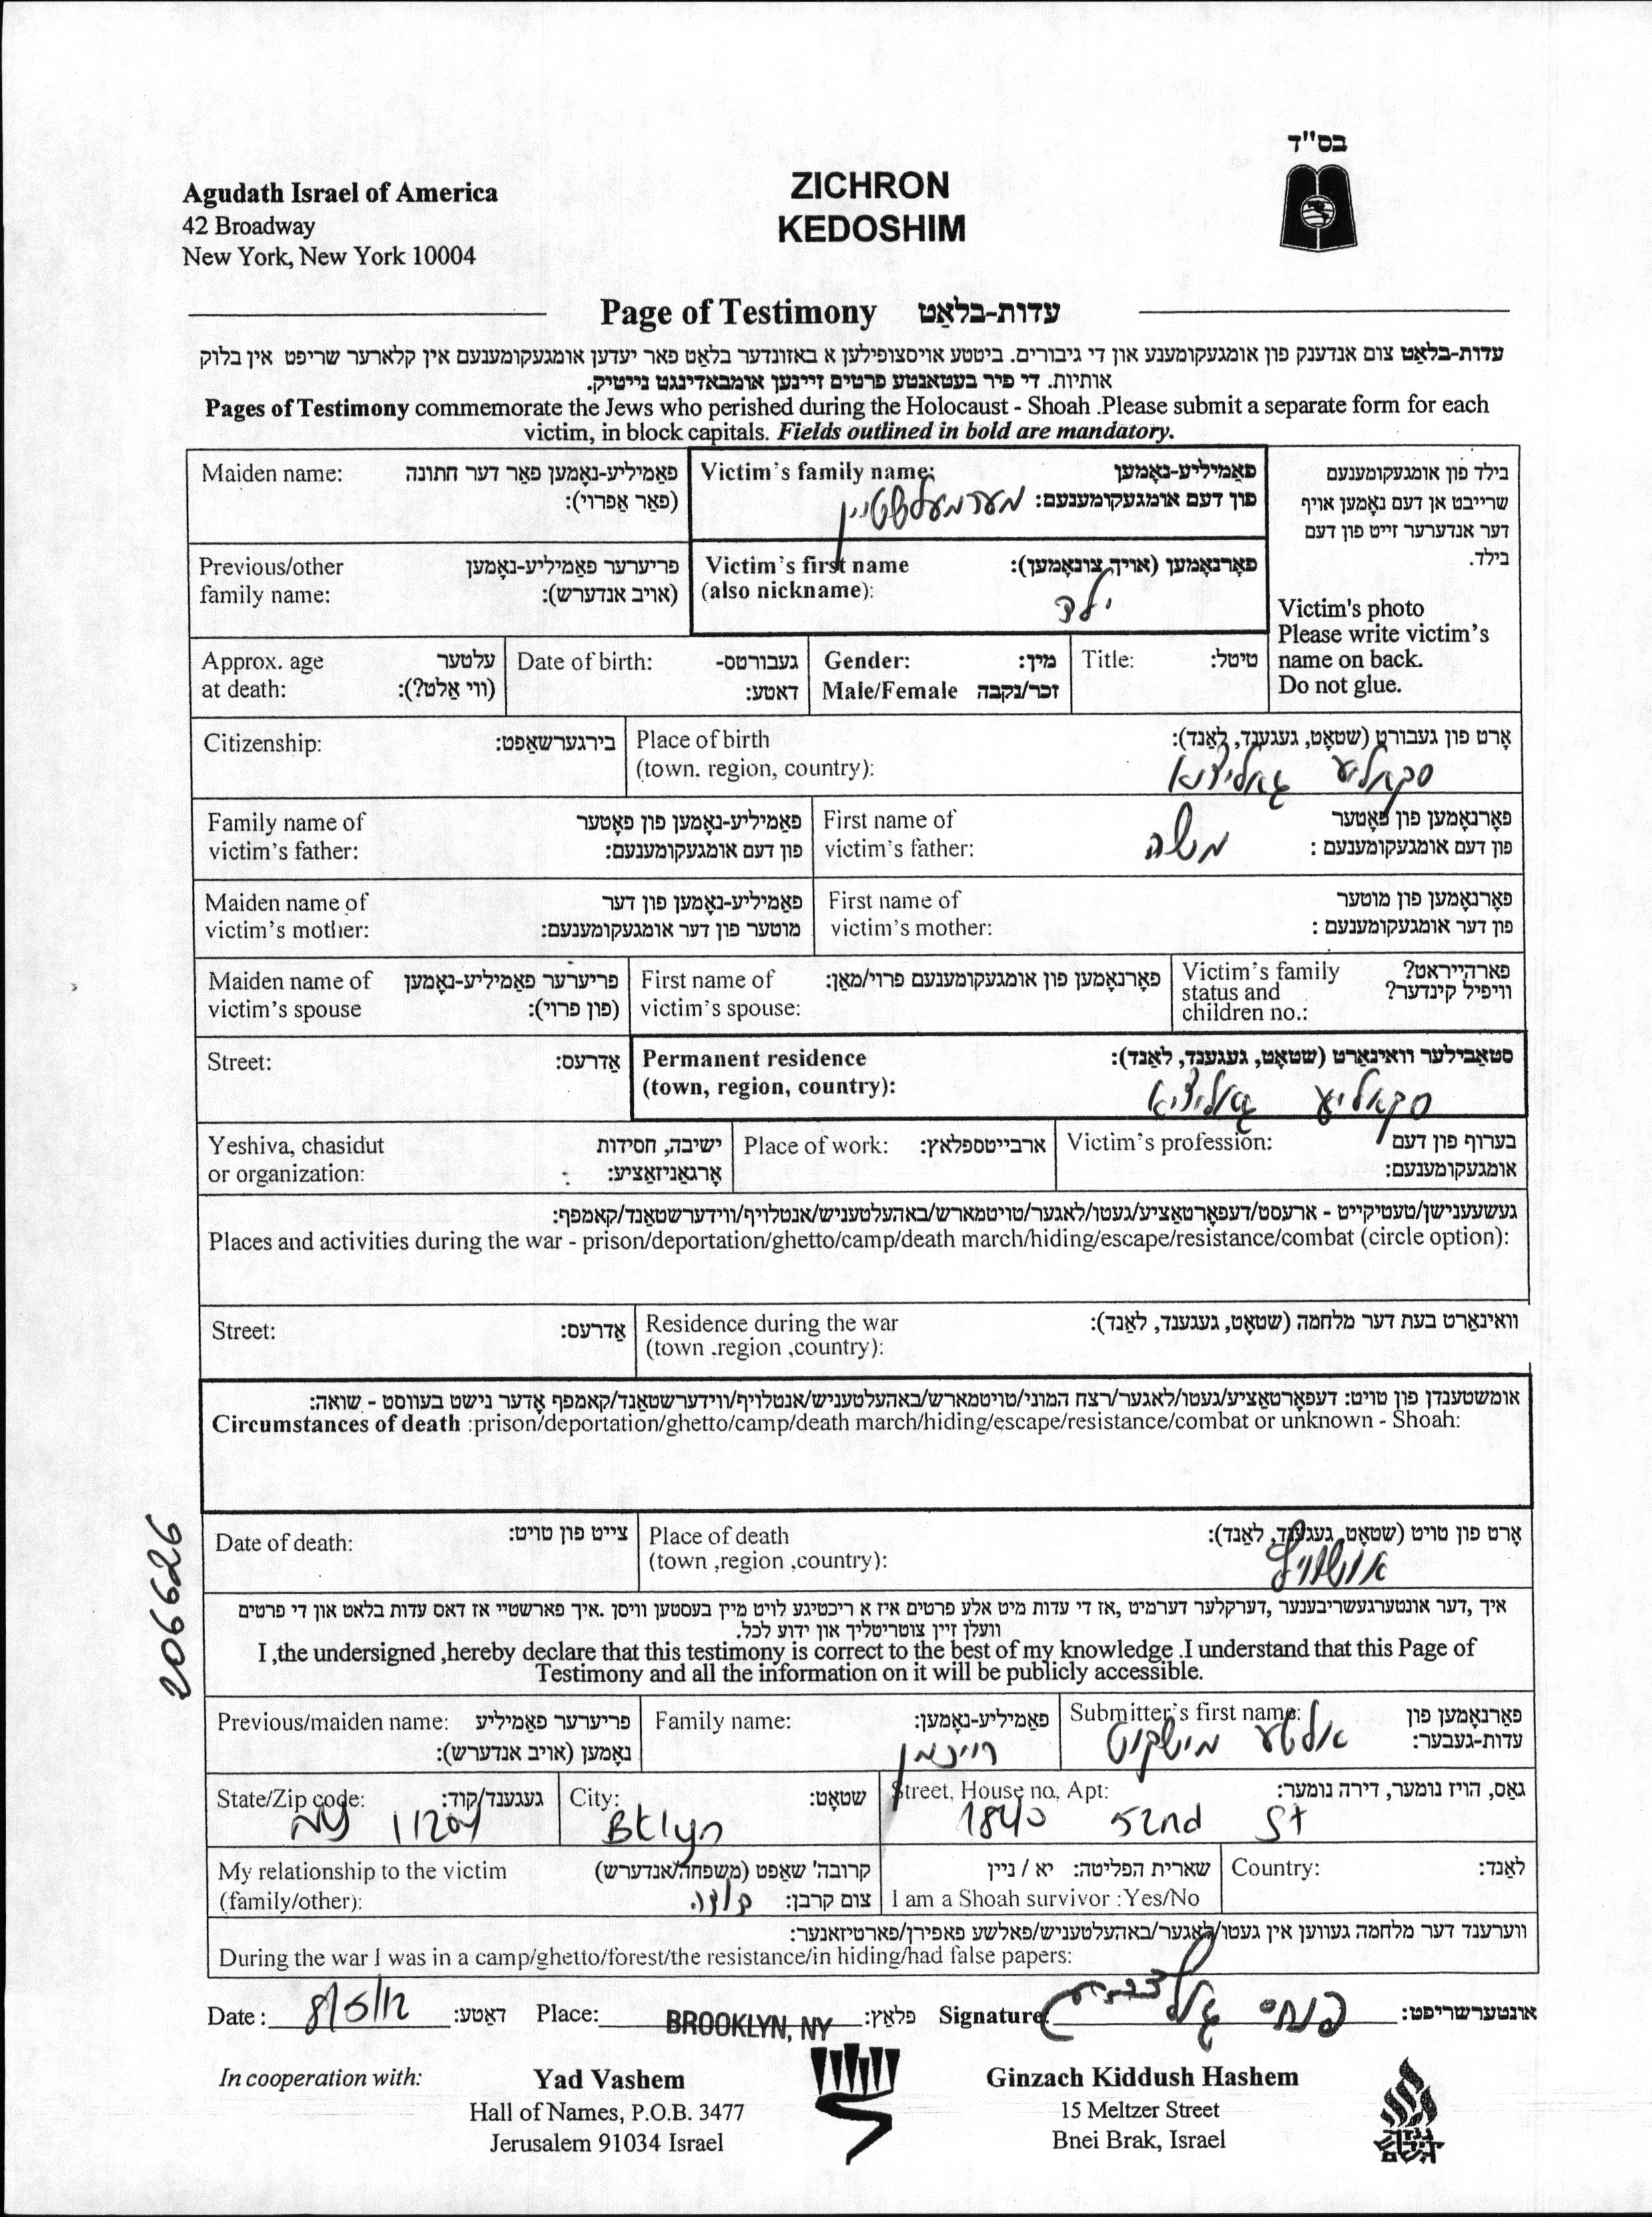 בס"ד
Agudath Israel of America
42 Broadway
New York, New York 10004
ZICHRON
KEDOSHIM
Page of Testimony עדות-בלאַט
עדות-בלאַט צום אנדענק פון אומגעקומענע און די גיבורים. ביטטע אויסצופילען א באזונדער בלאַט פאר יעדען אומגעקומענעם אין קלארער שריפט אין בלוק
אותיות. די פיר בעטאנטע פרטים זיינען אומבאדינגט נייטיק.
Pages of Testimony commemorate the Jews who perished during the Holocaust - Shoah .Please submit a separate form for each
victim, in block capitals. Fields outlined in bold are mandatory.
Maiden name: פאַמיליע-נאָמען פאַר דער חתונה
(פאַר אַפרוי):
Victim's family name: פאַמיליע-נאָמען
פון דעם אומגעקומענעם: מערמעלשטיין
בילד פון אומגעקומענעם
שרייבט אן דעם נאָמען אויף
דער אנדערער זייט פון דעם
בילד.
Previous/other פריערער פאַמיליע-נאָמען
family name: (אויב אנדערש):
Victim's first name פאָרנאָמען (אויך צונאָמען):
(also nickname): ילד
Victim's photo
Please write victim's
name on back.
Do not glue.
Approx. age עלטער
at death: (ווי אַלט?):
Date of birth: געבורטס-
דאטע:
Gender: מין:
Male/Female זכר/נקבה
Title: טיטל:
Citizenship: בירגערשאַפט:
Place of birth אָרט פון געבורט (שטאָט, געגענד, לאַנד):
(town. region, country): סקאליע גאליציא
Family name of פאַמיליע-נאָמען פון פאָטער
victim's father: פון דעם אומגעקומענעם:
First name of פאָרנאָמען פון פאָטער
victim's father: פון דעם אומגעקומענעם : משה
Maiden name of פאַמיליע-נאָמען פון דער
victim's mother: מוטער פון דער אומגעקומענעם:
First name of פאָרנאָמען פון מוטער
victim's mother: פון דער אומגעקומענעם :
Maiden name of פריערער פאַמיליע-נאָמען
victim's spouse (פון פרוי):
First name of פאָרנאָמען פון אומגעקומענעם פרוי/מאַן:
victim's spouse:
Victim's family פארהייראט?
status and וויפיל קינדער?
children no.:
Street: אַדרעס:
Permanent residence סטאַבילער וואינאַרט (שטאָט, געגענד, לאַנד):
(town, region, country): סקאליע גאליציא
Yeshiva, chasidut ישיבה, חסידות
or organization: אָרגאַניזאַציע:
Place of work: ארבייטספלאץ:
Victim's profession: בערוף פון דעם
אומגעקומענעם:
געשעענישן/טעטיקייט - ארעסט/דעפאָרטאַציע/געטו/לאגער/טויטמארש/באהעלטעניש/אנטלויף/ווידערשטאַנד/קאמפף:
Places and activities during the war - prison/deportation/ghetto/camp/death march/hiding/escape/resistance/combat (circle option):
Street: אַדרעס:
Residence during the war וואינארט בעת דער מלחמה (שטאָט, געגענד, לאַנד):
(town .region ,country):
אומשטענדן פון טויט: דעפאָרטאַציע/געטו/לאגער/רצח המוני/טויטמארש/באהעלטעניש/אנטלויף/ווידערשטאַנד/קאמפף אָדער נישט בעוווסט - שואה:
Circumstances of death :prison/deportation/ghetto/camp/death march/hiding/escape/resistance/combat or unknown - Shoah:
Date of death: צייט פון טויט:
Place of death אָרט פון טויט (שטאָט, געגענד, לאַנד):
(town ,region ,country): אושוויץ
206626
איך ,דער אונטערגעשריבענער ,דערקלער דערמיט ,אז די עדות מיט אלע פרטים איז א ריכטיגע לויט מיין בעסטען וויסן .איך פארשטיי אז דאס עדות בלאט און די פרטים
וועלן זיין צוטריטליך און ידוע לכל.
I ,the undersigned ,hereby declare that this testimony is correct to the best of my knowledge .I understand that this Page of
Testimony and all the information on it will be publicly accessible.
Previous/maiden name: פריערער פאַמיליע
נאָמען (אויב אנדערש):
Family name: פאַמיליע-נאָמען:
Submitter's first name: פאָרנאָמען פון
עדות-געבער: אלטע
State/Zip code: געגענד/קוד:
NY 11204
City: שטאָט:
Bklyn
Street, House no, Apt: גאַס, הויז נומער, דירה נומער:
1840 52nd St
My relationship to the victim קרובה' שאַפט (משפחה/אנדערש)
(family/other): צום קרבן:
שארית הפליטה: יא / ניין
I am a Shoah survivor :Yes/No
Country: לאַנד:
ווערענד דער מלחמה געווען אין געטו/לאַגער/באהעלטעניש/פאלשע פאפירן/פארטיזאנער:
During the war I was in a camp/ghetto/forest/the resistance/in hiding/had false papers:
Date: 8/5/12 דאַטע: Place: BROOKLYN, NY פלאַץ: Signature: אונטערשריפט:
In cooperation with:
Yad Vashem
Hall of Names, P.O.B. 3477
Jerusalem 91034 Israel
Ginzach Kiddush Hashem
15 Meltzer Street
Bnei Brak, Israel